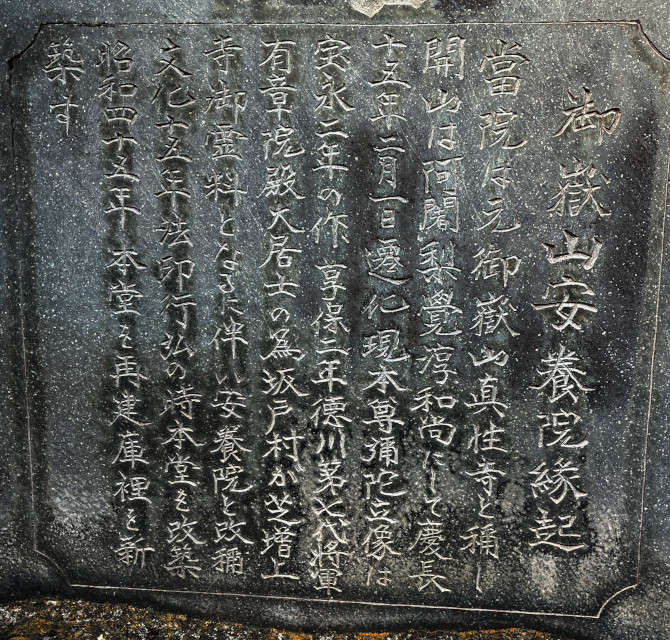 御嶽山安養院縁起
當院は元御嶽山真性寺と稱し
開山は阿闍梨覺淳和尚にして慶長
十五年二月一日遷化現本尊彌陀立像は
宝永二年の作 享保二年德川第七代将軍
有章院殿大居士の為坂戸村が芝増上
寺御霊料となるに伴い安養院と改稱
文化十五年法印行弘の時本堂を改築
昭和四十五年本堂を再建庫裡を新
築す